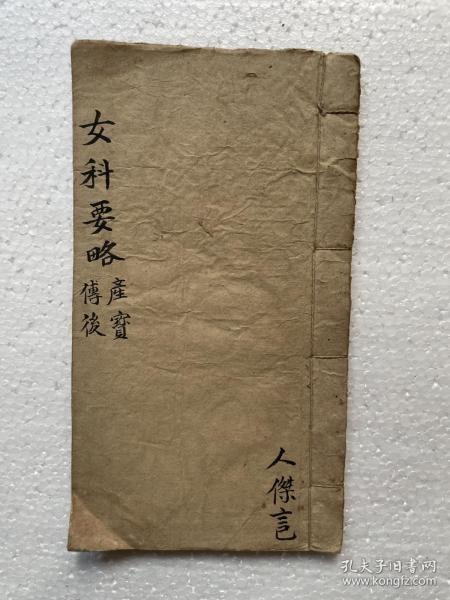 女科要略
產寶
傅後
人傑言
孔夫子旧书网
www.kongfz.com